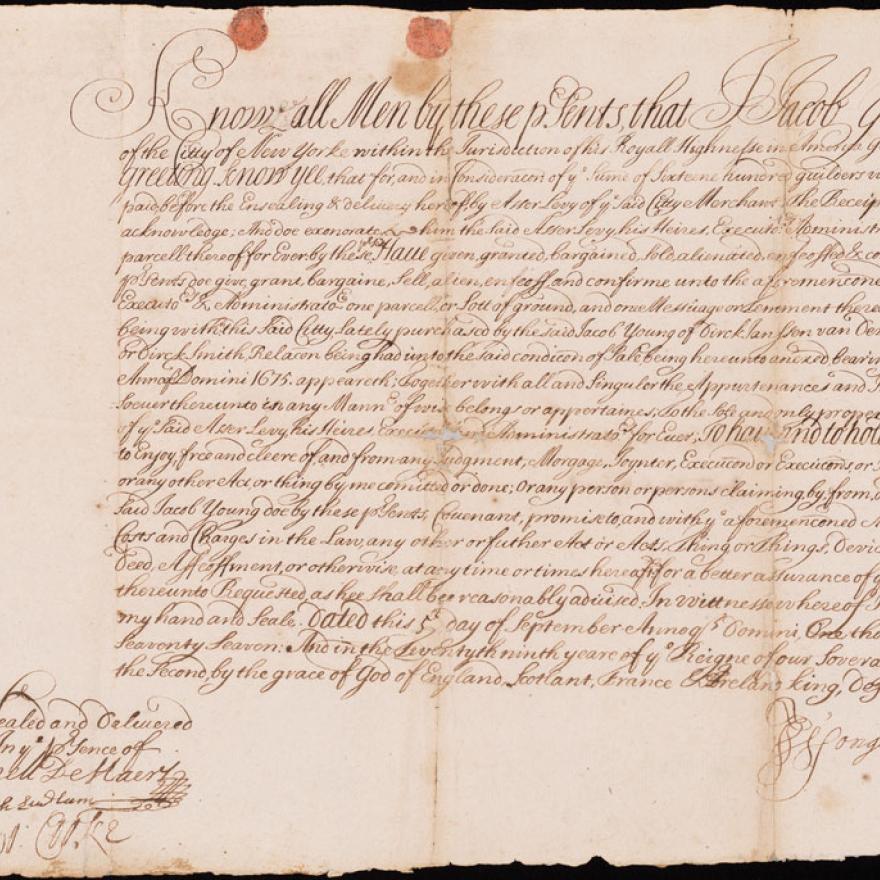 Know all Men by these p'sents, that I Jacob
of the Citty of New Yorke within the Jurisdiction of his Royall Highnesse in America
Greeting. know yee, that for, and in Consideracon of yᵉ Sume of Sixteene hundred guilders
paid, before the Ensealing & delivery hereof, by Asser Levy of yᵉ Said Citty Merchant, The Receip
acknowledge; And doe exonorate him the Said Asser Levy, his Heires, Executoʳˢ Administra
parcell thereof for Ever, by these p'sents Haue given, granted, bargained, Sold, alienated, enfeoffed & co
p'sents doe give, grant, bargaine, Sell, alien, enfeoff, and confirme unto the aforemencone
Executoʳˢ & Administratoʳˢ one parcell, or Lott of ground, and one Messuage or Tenement there
being within this Said Citty, Lately purchased by the Said Jacob Young of Dirck Janssen van De
or Dirck Smith, Relacon being had unto the Said condicon of Sale, being hereunto anexed bearin
Anno Domini 1675. appeareth; Together with all and Singular the Appurtenances and
Soever thereunto in any Mannʳ of wise belongs or appertaines, To the Sole and only proper
of yᵉ Said Asser Levy, his Heires Executoʳˢ Administratoʳˢ for Ever, To have and to hol
to Enjoy, free and cleere of, and from any Judgment, Morgage, Joynter, Execucon or Execucons, or
or any other Act, or thing by me comitted or done; Or any person or persons claiming, by, from,
Said Jacob Young doe by these p'sents, Covenant, promise to, and with yᵉ aforemenconed
Costs and Charges in the Law, any other or futher Act or Acts, Thing or Things, Devic
Deed, Affeoffment, or otherwise, at any time or times hereafter for a better assurance of
thereunto Requested, as hee Shall bee reasonably advised. In Wittness whereof
my hand and Seale. Dated this 5th day of September Annoqʳ Domini, One tho
Seaventy Seaven: And in the Twentyth ninth yeare of yᵉ Reigne of our Sovera
the Second, by the grace of God of England, Scotlant, France & Ireland king, De
ealed and Delivered
In yᵉ p'sence of
De Haert
Ludlam
Cooke
Jong